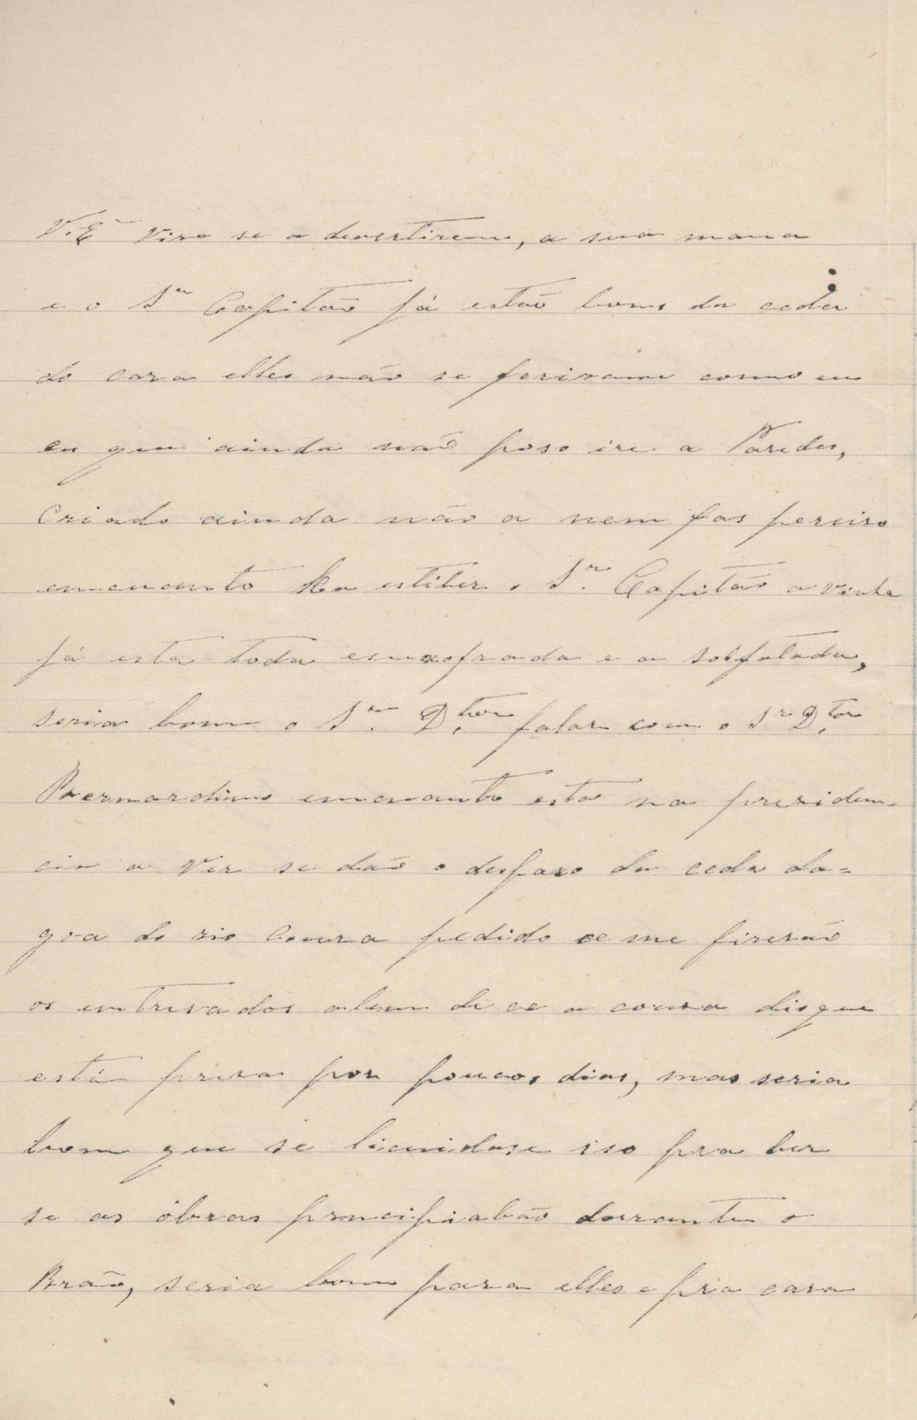 V. Eª vira se a devertirem, a sua mana
e o Snr Capitão já estão bons da ceda
do cara elles não se feriram como eu
eu que ainda não poso ire a Paredes,
Criado ainda não a nem fas perciso
emcuanto ka estiber o Snr. Capitão a vinha
já esta toda emxofrada e a solfatada,
seria bom o Snr. Dtor falar com o Snr Dtor
Bernardino emcuanto esta na presiden-
cia a ver se dão o despaxo da ceda da-
goa do rio Coura pedido ce me fizerão
os entrevados alem de ce a cousa disque
está presa por poucos dias, mas seria
bom que se licuidase iso pra ber
se as óbras prencipiabão durante o
Brão, seria bom para elles e pra casa